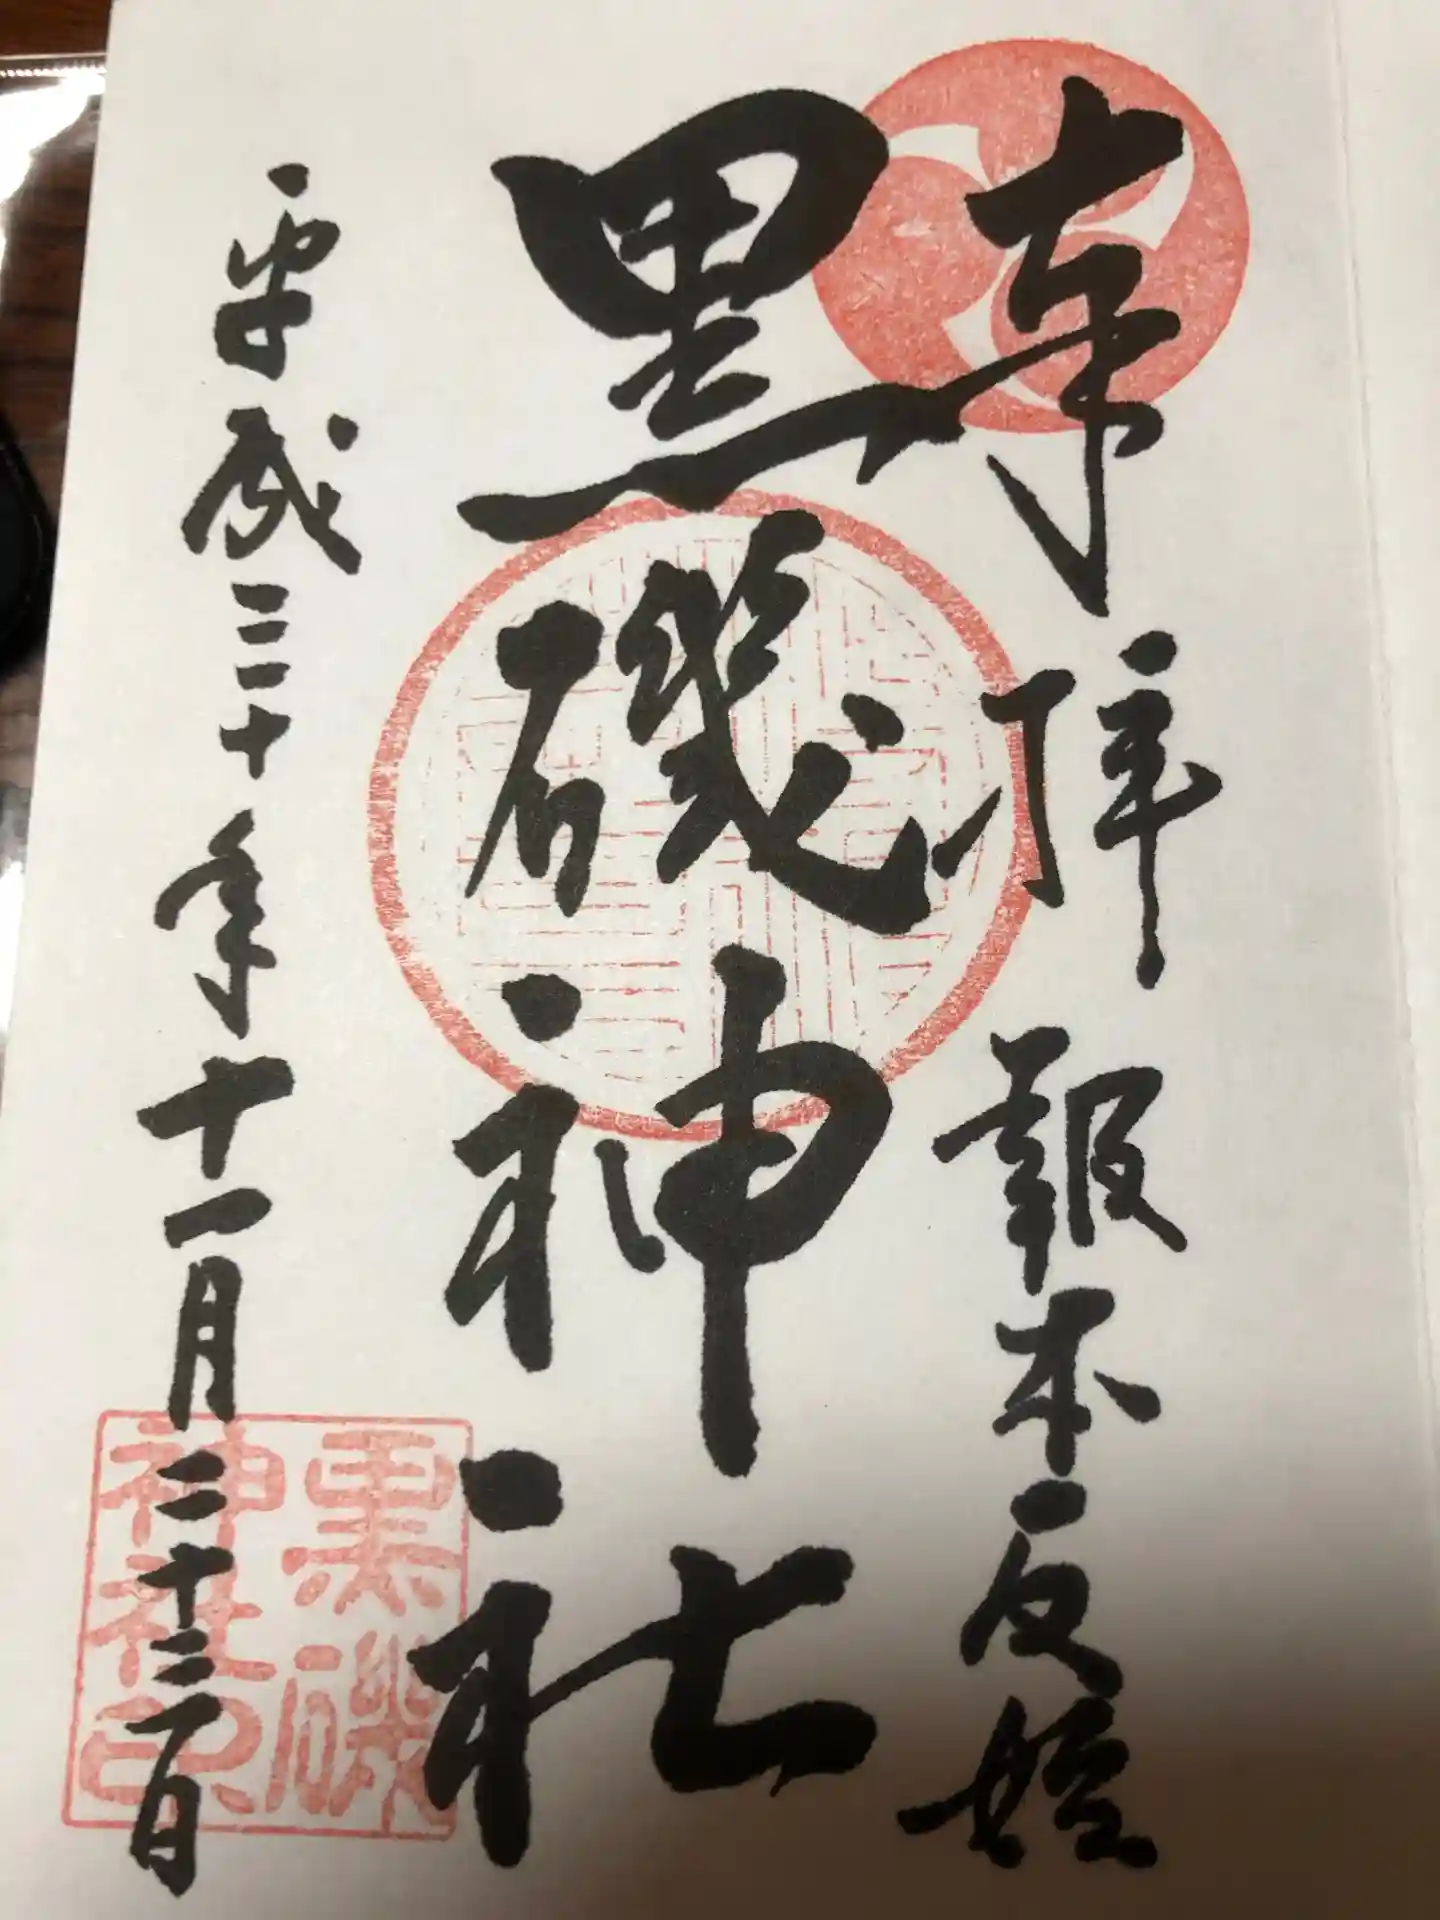 奉拝 報本反始
黒磯神社
平成三十年十一月二十三日
黒磯
神社印